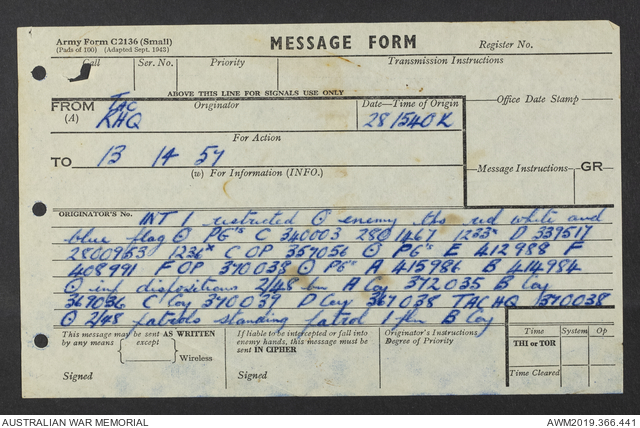 Army Form C2136 (Small)
(Pads of 100) (Adapted Sept. 1943)
MESSAGE FORM
Register No.
Call
Ser. No.
Priority
Transmission Instructions
ABOVE THIS LINE FOR SIGNALS USE ONLY
FROM
(A)
TAC
RHQ
Originator
Date—Time of Origin
281540K
Office Date Stamp
For Action
TO
13 14 57
(w) For Information (INFO.)
Message Instructions
GR
ORIGINATOR'S No.
INT 1 restricted ⊙ enemy red white and
blue flag ⊙ PG's C 340003 280 1467 D 339517
2800953 OP 357056 ⊙ PG's E 412988 F
408991 F OP 370038 ⊙ PG's A 415986 B 414984
⊙ inf dispositions 2/48 bn A Coy 372035 B Coy
367036 C Coy 370039 D Coy 367038 TAC HQ 370038
⊙ 2/48 patrols standing patrol B Coy
This message may be sent AS WRITTEN
by any means
except
Wireless
Signed
If liable to be intercepted or fall into
enemy hands, this message must be
sent IN CIPHER
Signed
Originator's Instructions,
Degree of Priority
Time
System
Op
THI or TOR
Time Cleared
AUSTRALIAN WAR MEMORIAL
AWM2019.366.441